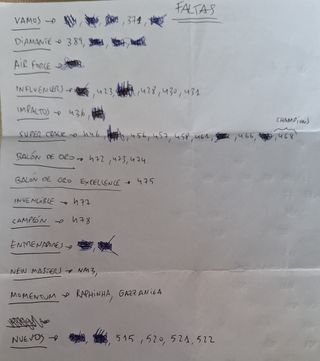 FALTAS
VAMOS → , , , 371,
DIAMANTE → 389,
AIR FORCE →
INFLUENCERS → , 423, , 428, 430, 431
IMPACTOS → 436,
CHAMPIONS
SUPER CRACK → 446, , 456, 457, 458, 461, , 466, , 468
BALÓN DE ORO → 472, 473, 474
BALÓN DE ORO EXCELLENCE → 475
INVENCIBLE → 477
CAMPEÓN → 478
ENTRENADORES →
NEW MASTERS → NM3,
MOMENTUM → RAPHINHA, GAZZANIGA
NUEVOS → , , 515, 520, 521, 522